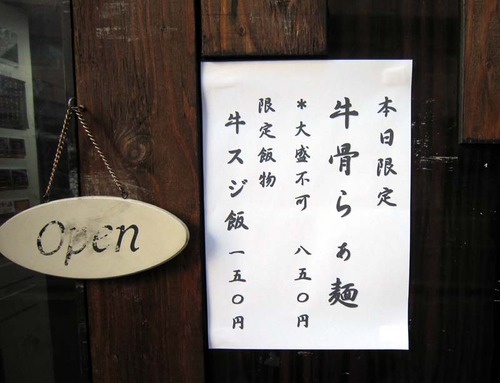 本日限定
牛骨らぁ麺
＊大盛不可 八五〇円
限定飯物
牛スジ飯 一五〇円
Open